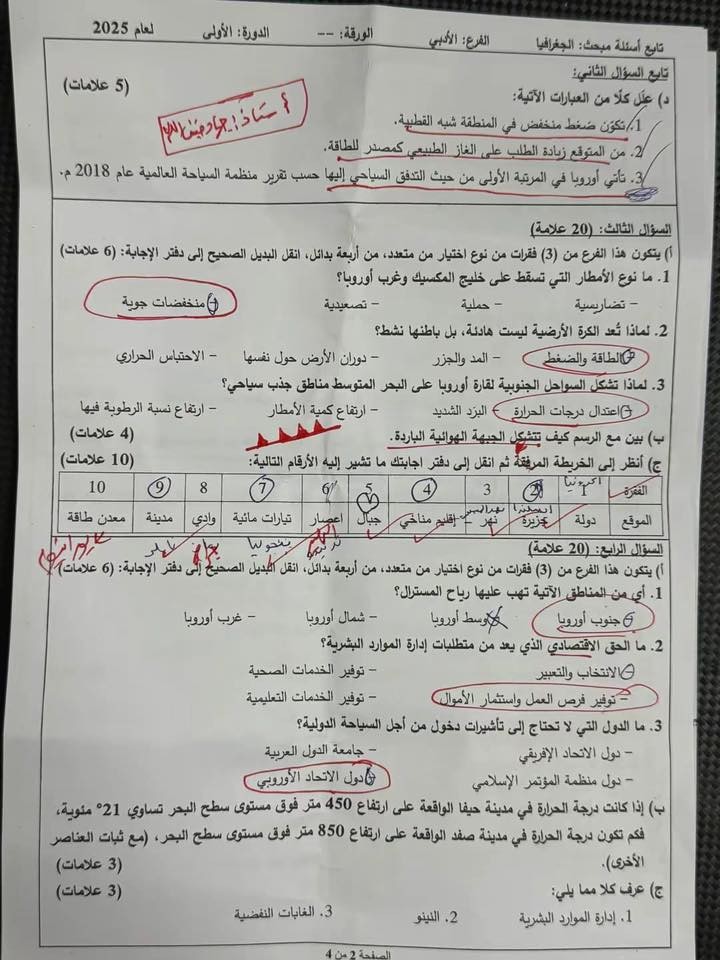 تابع أسئلة مبحث: الجغرافيا الفرع: الأدبي الورقة: -- الدورة: الأولى لعام 2025
تابع السؤال الثاني:
د) علّل كلًا من العبارات الآتية: (5 علامات)
1. تكوّن ضغط منخفض في المنطقة شبه القطبية.
2. من المتوقع زيادة الطلب على الغاز الطبيعي كمصدر للطاقة.
3. تأتي أوروبا في المرتبة الأولى من حيث التدفق السياحي إليها حسب تقرير منظمة السياحة العالمية عام 2018 م.
السؤال الثالث: (20 علامة)
أ) يتكون هذا الفرع من (3) فقرات من نوع اختيار من متعدد، من أربعة بدائل، انقل البديل الصحيح إلى دفتر الإجابة: (6 علامات)
1. ما نوع الأمطار التي تسقط على خليج المكسيك وغرب أوروبا؟
- تضاريسية - حملية - تصعيدية - منخفضات جوية
2. لماذا تُعد الكرة الأرضية ليست هادئة، بل باطنها نشط؟
- الطاقة والضغط - المد والجزر - دوران الأرض حول نفسها - الاحتباس الحراري
3. لماذا تشكل السواحل الجنوبية لقارة أوروبا على البحر المتوسط مناطق جذب سياحي؟
- اعتدال درجات الحرارة - البرد الشديد - ارتفاع كمية الأمطار - ارتفاع نسبة الرطوبة فيها
ب) بين مع الرسم كيف تتشكل الجبهة الهوائية الباردة. (4 علامات)
ج) أنظر إلى الخريطة المرفقة ثم انقل إلى دفتر اجابتك ما تشير إليه الأرقام التالية: (10 علامات)
الفقرة 1 2 3 4 5 6 7 8 9 10
الموقع دولة جزيرة نهر إقليم مناخي جبال اعصار تيارات مائية وادي مدينة معدن طاقة
السؤال الرابع: (20 علامة)
أ) يتكون هذا الفرع من (3) فقرات من نوع اختيار من متعدد، من أربعة بدائل، انقل البديل الصحيح إلى دفتر الإجابة: (6 علامات)
1. أي من المناطق الآتية تهب عليها رياح المسترال؟
- جنوب أوروبا - وسط أوروبا - شمال أوروبا - غرب أوروبا
2. ما الحق الاقتصادي الذي يعد من متطلبات إدارة الموارد البشرية؟
- الانتخاب والتعبير - توفير الخدمات الصحية
- توفير فرص العمل واستثمار الأموال - توفير الخدمات التعليمية
3. ما الدول التي لا تحتاج إلى تأشيرات دخول من أجل السياحة الدولية؟
- دول الاتحاد الإفريقي - جامعة الدول العربية
- دول منظمة المؤتمر الإسلامي - دول الاتحاد الأوروبي
ب) إذا كانت درجة الحرارة في مدينة حيفا الواقعة على ارتفاع 450 متر فوق مستوى سطح البحر تساوي 21° مئوية،
فكم تكون درجة الحرارة في مدينة صفد الواقعة على ارتفاع 850 متر فوق مستوى سطح البحر، (مع ثبات العناصر
الأخرى). (3 علامات)
ج) عرف كلا مما يلي: (3 علامات)
1. إدارة الموارد البشرية 2. النينو 3. الغابات النفضية
الصفحة 2 من 4